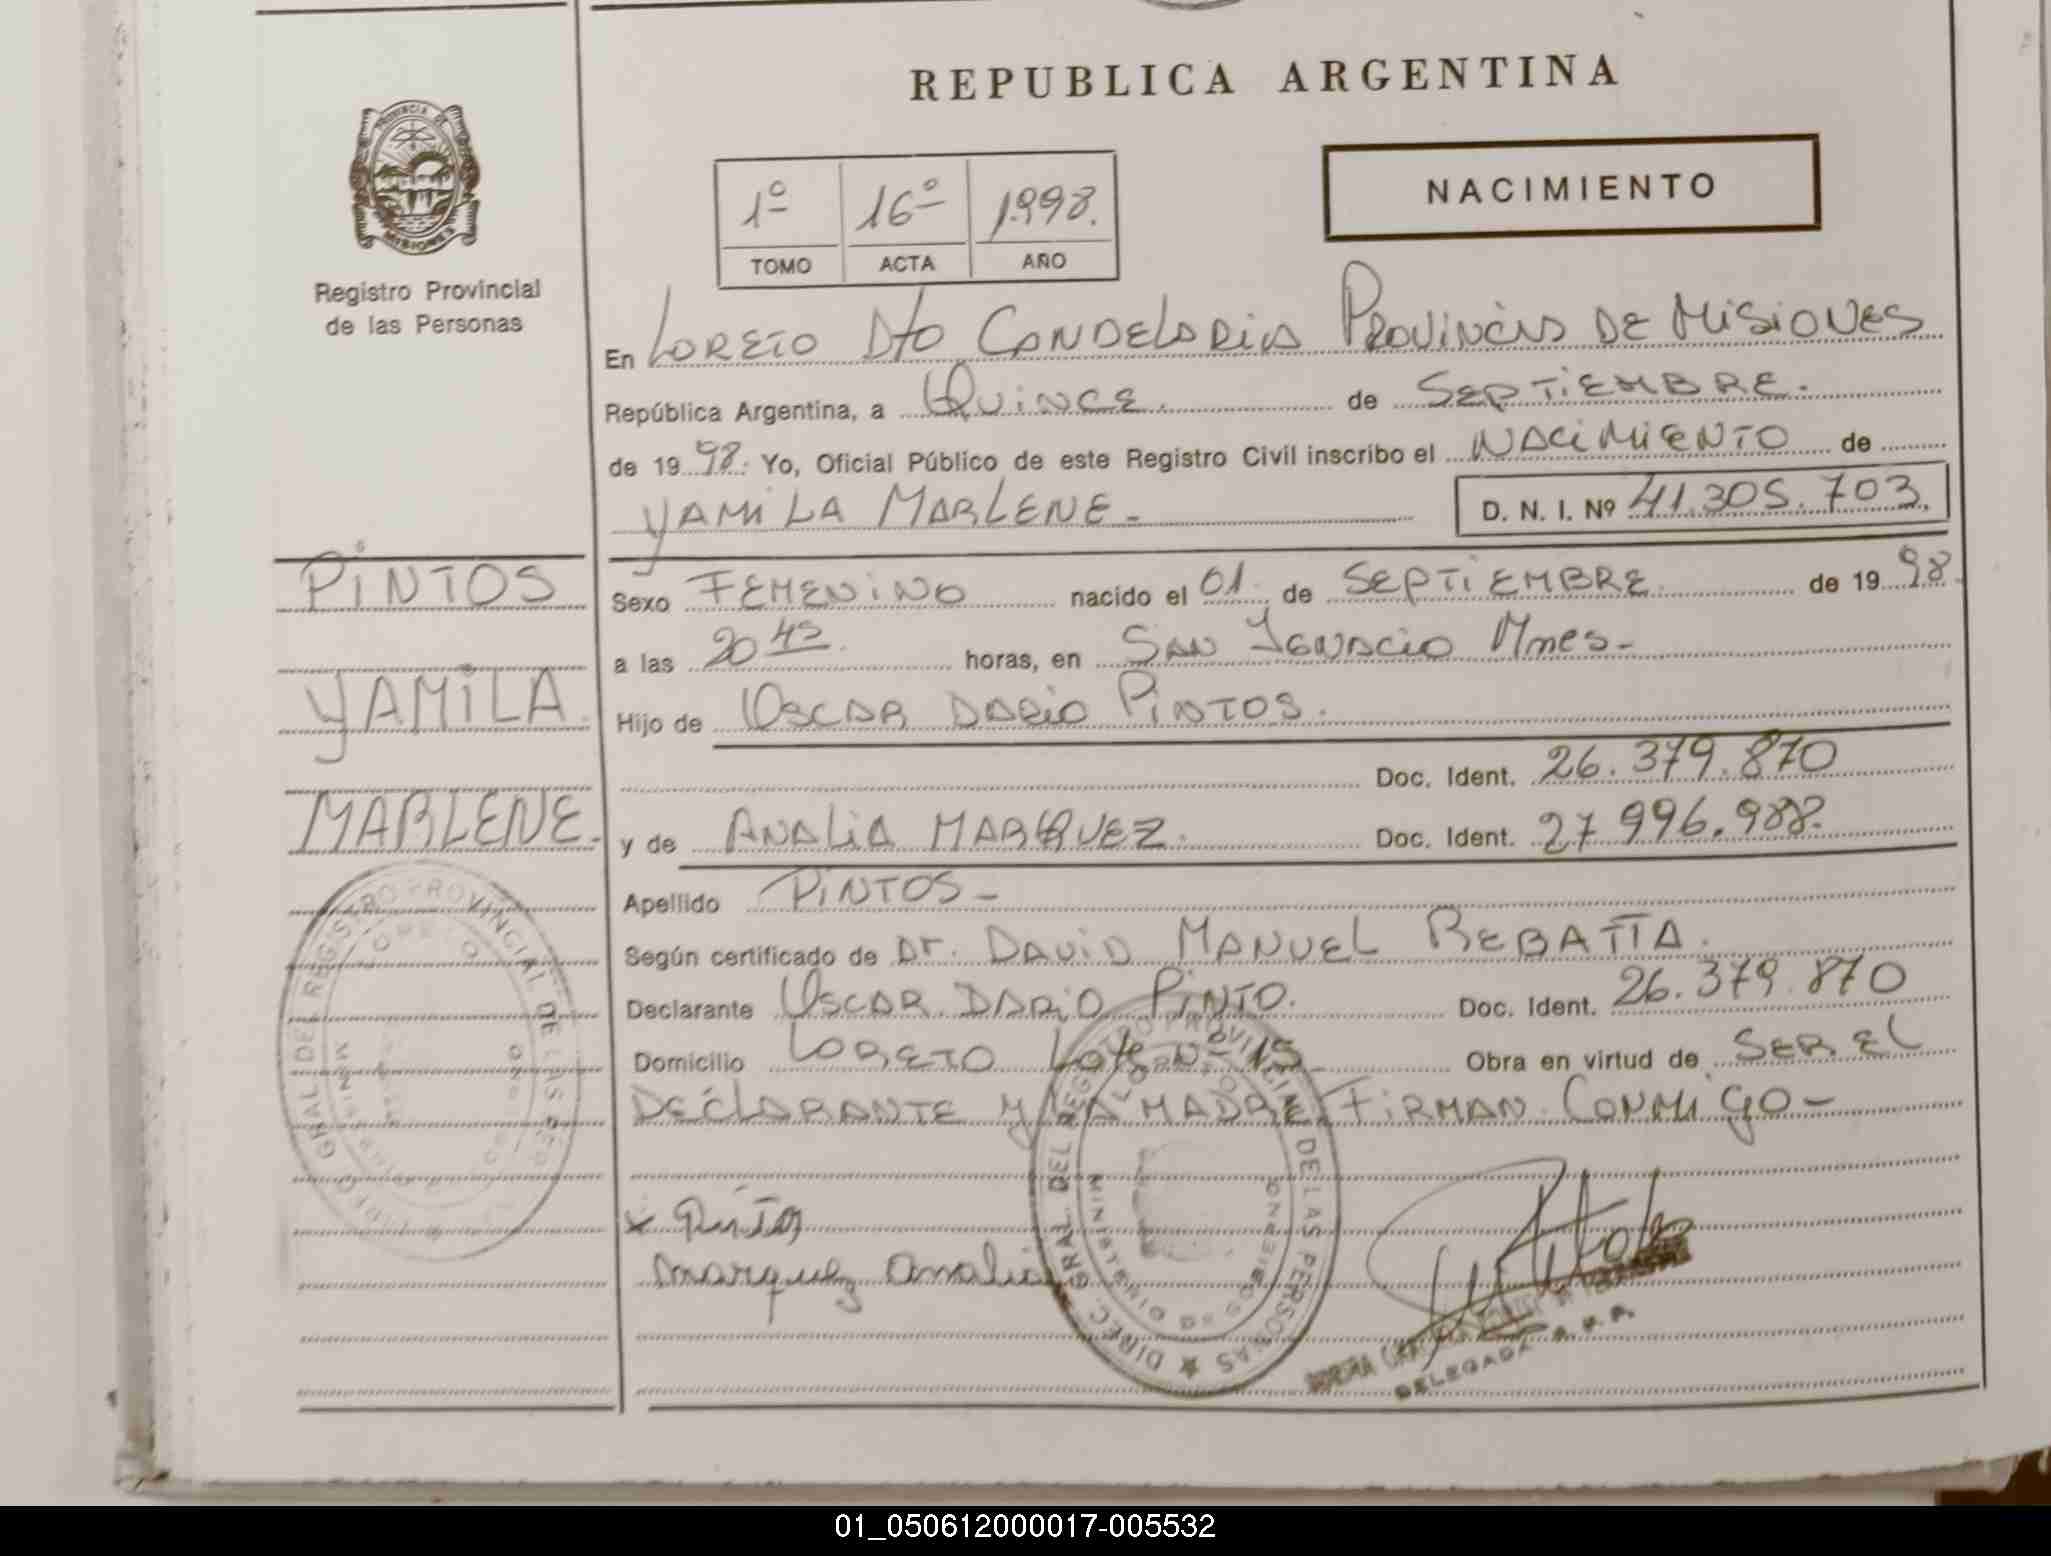 REPUBLICA ARGENTINA
PROVINCIA DE
MISIONES
Registro Provincial
de las Personas
1º 16º 1998.
TOMO ACTA AÑO
NACIMIENTO
En LORETO Dto CANDELARIA PROVINCIA DE MISIONES
República Argentina, a QUINCE. de SEPTIEMBRE.
de 19 98. Yo, Oficial Público de este Registro Civil inscribo el NACIMIENTO de
YAMILA MARLENE - D. N. I. Nº 41.305.703.
PINTOS
YAMILA
MARLENE.
Sexo FEMENINO nacido el 01. de SEPTIEMBRE. de 19 98.
a las 20 45. horas, en SAN IGNACIO Mnes-
Hijo de OSCAR DARIO PINTOS.
Doc. Ident. 26.379.870
y de ANALIA MARQUEZ. Doc. Ident. 27 996.988.
Apellido PINTOS -
Según certificado de Dr. DAVID MANUEL REBATTA.
Declarante OSCAR DARIO PINTO. Doc. Ident. 26.379.870
Domicilio LORETO Lote Nº 15 Obra en virtud de SER EL
DECLARANTE Y LA MADRE FIRMAN CONMIGO -
x Pintos
marquez analia
DIREC. GRAL. DEL REGISTRO PROVINCIAL DE LAS PERSONAS
LORETO
DIREC. GRAL. DEL REGISTRO PROVINCIAL DE LAS PERSONAS
MINISTERIO DE GOBIERNO
DELEGADA
01_050612000017-005532